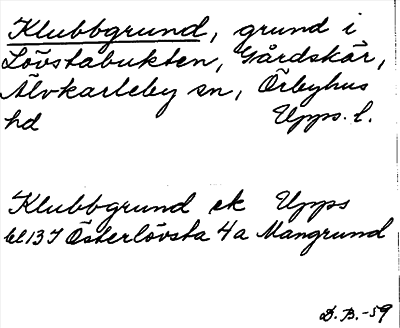 Klubbgrund, grund i
Lövstabukten, Gårdskär,
Älvkarleby sn, Örbyhus
hd Upps. l.
Klubbgrund ek Upps
bl 137 Österlövsta 4a Mangrund
D. B. -59